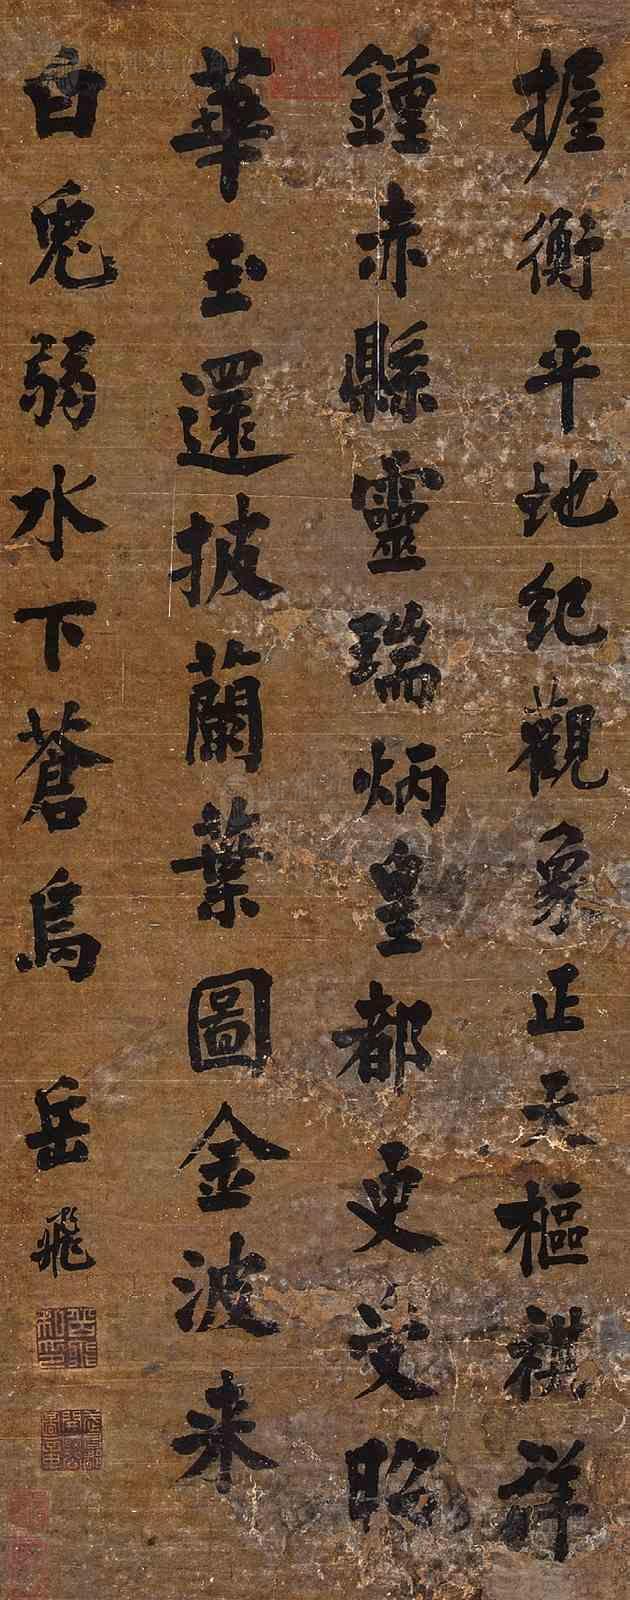 握衡平地紀觀象正天樞祺祥
鍾赤縣靈瑞炳皇都更受昭
華玉還披蘭葉圖金波來
白兔弱水下蒼烏
岳飛